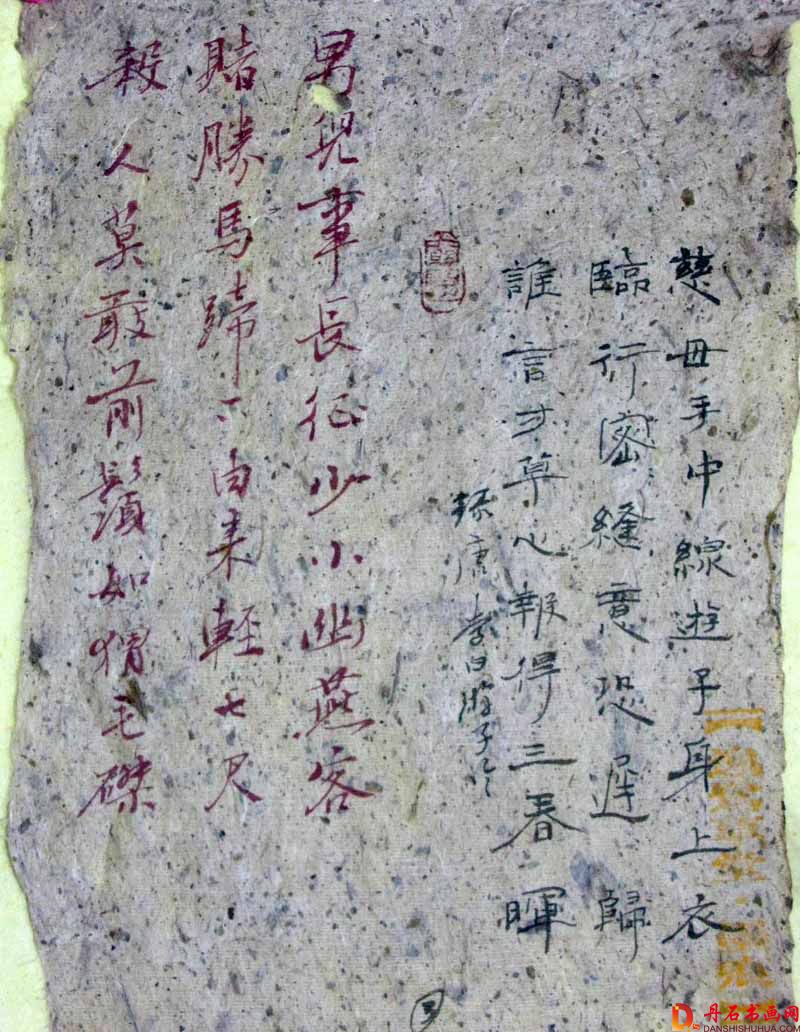 慈母手中線遊子身上衣
臨行密縫意恐遲歸
誰言寸草心報得三春暉
唐李白游子吟
男兒事長征少小幽燕客
賭勝馬蹄下由来輕七尺
殺人莫敢前鬚如猬毛磔
丹石书画网
DANSHISHUHUA.COM